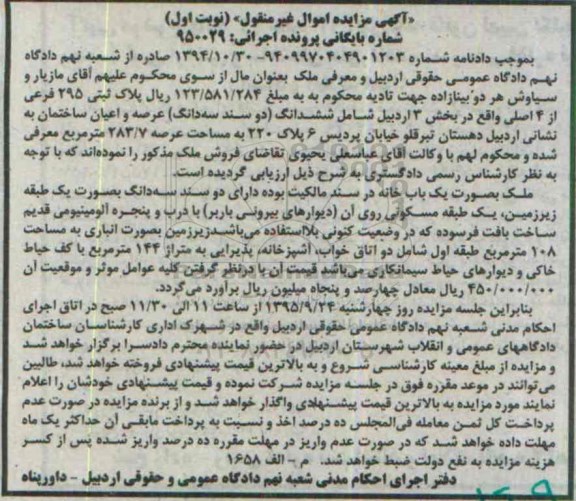 «آگهی مزایده اموال غیرمنقول» (نوبت اول)
شماره بایگانی پرونده اجرائی: ۹۵۰۰۲۹
بموجب دادنامه شماره ۹۴۰۹۹۷۰۴۰۴۹۰۱۲۰۳-۱۳۹۴/۱۰/۳۰ صادره از شعبه نهم دادگاه
نهم دادگاه عمومی حقوقی اردبیل و معرفی ملک بعنوان مال از سوی محکوم علیهم آقای مازیار و
سیاوش هر دو بینازاده جهت تادیه محکوم به به مبلغ ۱۲۳/۵۸۱/۲۸۴ ریال پلاک ثبتی ۲۹۵ فرعی
از ۴ اصلی واقع در بخش ۳ اردبیل شامل ششدانگ (دو سند سه‌دانگ) عرصه و اعیان ساختمان به
نشانی اردبیل دهستان نیرقلو خیابان پردیس ۶ پلاک ۲۲۰ به مساحت عرصه ۲۸۳/۷ مترمربع معرفی
شده و محکوم لهم با وکالت آقای عباسعلی یحیوی تقاضای فروش ملک مذکور را نموده‌اند که با توجه
به نظر کارشناس رسمی دادگستری به شرح ذیل ارزیابی گردیده است.
ملک بصورت یک باب خانه در سند مالکیت بوده دارای دو سند سه‌دانگ بصورت یک طبقه
زیرزمین، یک طبقه مسکونی روی آن (دیوارهای بیرونی باربر) با درب و پنجره آلومینیومی قدیم
ساخت بافت فرسوده که در وضعیت کنونی بلااستفاده می‌باشد زیرزمین بصورت انباری به مساحت
۱۰۸ مترمربع طبقه اول شامل دو اتاق خواب، آشپزخانه، پذیرایی به متراژ ۱۴۴ مترمربع با کف حیاط
خاکی و دیوارهای حیاط سیمانکاری می‌باشد قیمت آن با درنظر گرفتن کلیه عوامل موثر و موقعیت آن
۴۵۰/۰۰۰/۰۰۰ ریال معادل چهارصد و پنجاه میلیون ریال برآورد می‌گردد.
بنابراین جلسه مزایده روز چهارشنبه ۱۳۹۵/۹/۲۴ از ساعت ۱۱ الی ۱۱/۳۰ صبح در اتاق اجرای
احکام مدنی شعبه نهم دادگاه عمومی حقوقی اردبیل واقع در شهرک اداری کارشناسان ساختمان
دادگاههای عمومی و انقلاب شهرستان اردبیل در حضور نماینده محترم دادسرا برگزار خواهد شد
و مزایده از مبلغ معینه کارشناسی شروع و به بالاترین قیمت پیشنهادی فروخته خواهد شد، طالبین
می‌توانند در موعد مقرره فوق در جلسه مزایده شرکت نموده و قیمت پیشنهادی خودشان را اعلام
نمایند مورد مزایده به بالاترین قیمت پیشنهادی واگذار خواهد شد و از برنده مزایده در صورت عدم
پرداخت کل ثمن معامله فی‌المجلس ده درصد اخذ و نسبت به پرداخت مابقی آن حداکثر یک ماه
مهلت داده خواهد شد که در صورت عدم واریز در مهلت مقرره ده درصد واریز شده پس از کسر
هزینه مزایده به نفع دولت ضبط خواهد شد. م - الف ۱۶۵۸
دفتر اجرای احکام مدنی شعبه نهم دادگاه عمومی و حقوقی اردبیل - داورپناه